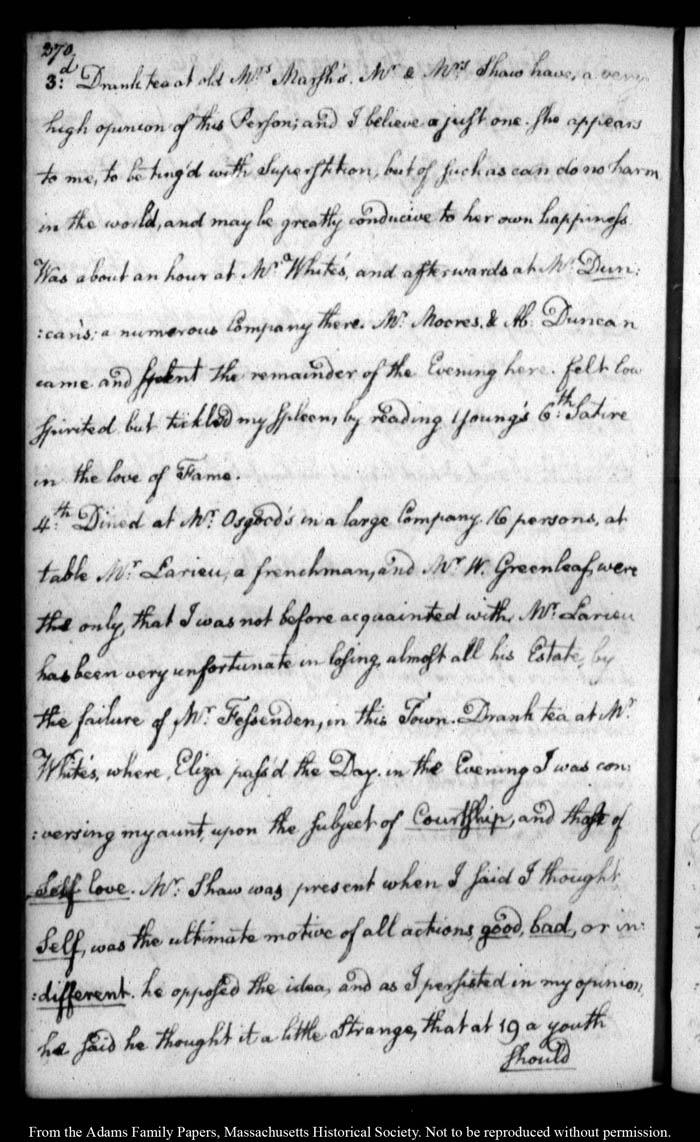 270.
3.d Drank tea at old Mrs. Marsh's. Mr. & Mrs. Shaw have, a very
high opinion of this Person; and I believe a just one. She appears
to me, to be ting'd with Superstition, but of such as can do no harm
in the world, and may be greatly conducive to her own happiness.
Was about an hour at Mr. White's, and afterwards at Mr. Dun:
:can's; a numerous Company there. Mr. Moores. & Duncan
came and spent the remainder of the Evening here. felt low
spirited but tickled my spleen, by reading Young's 6.th Satire
in the love of Fame.
4.th Dined at Mr. Osgood's in a large Company. 16 persons, at
table Mr. Larieu, a frenchman, and Mr. W. Greenleaf, were
the only, that I was not before acquainted with, Mr. Larieu
has been very unfortunate in losing, almost all his Estate, by
the failure of Mr. Fessenden, in this Town. Drank tea at Mr.
White's, where, Eliza pass'd the Day. in the Evening I was con:
:versing my aunt, upon the subject of Courtship, and that of
Self love. Mr. Shaw was present when I said I thought
Self, was the ultimate motive of all actions, good, bad, or in:
:different. he opposed the idea, and as I persisted in my opinion,
he said he thought it a little strange, that at 19 a youth
should
From the Adams Family Papers, Massachusetts Historical Society. Not to be reproduced without permission.